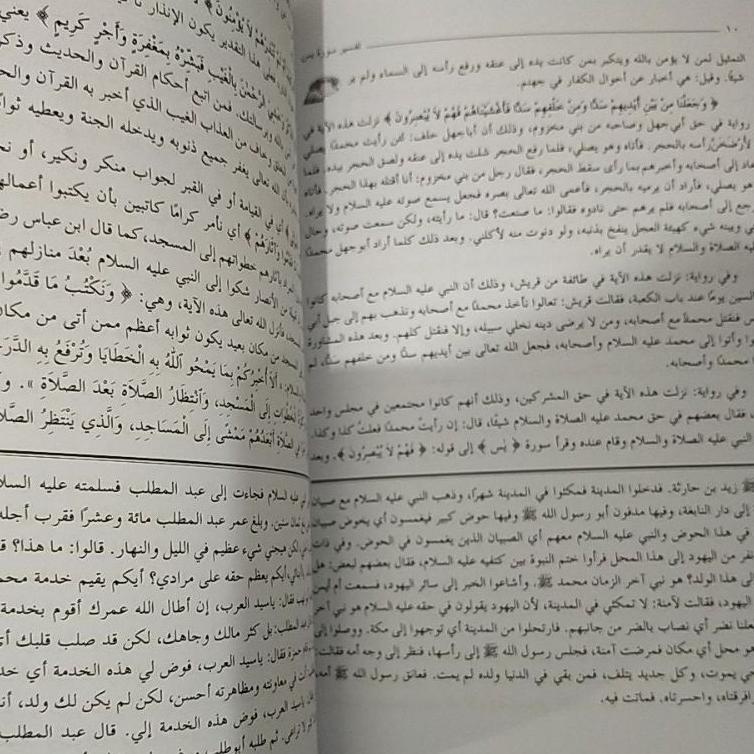 ١٠
تفسير سورة يس
التمثيل لمن لا يؤمن بالله ويتكبر بمن كانت يده إلى عنقه ورفع رأسه إلى السماء ولم ير
شيئًا. وقيل: هي أخبار عن أحوال الكفار في جهنم.
﴿ وَجَعَلْنَا مِنْ بَيْنِ أَيْدِيهِمْ سَدًّا وَمِنْ خَلْفِهِمْ سَدًّا فَأَغْشَيْنَاهُمْ فَهُمْ لاَ يُبْصِرُونَ ﴾ نزلت هذه الآية في
رواية في حق أبي جهل وصاحبه من بني مخزوم، وذلك أن أبا جهل حلف: لئن رأيت محمدًا يصلي
لأرضخن رأسه بالحجر. فأتاه وهو يصلي، فلما رفع الحجر شلت يده إلى عنقه ولصق الحجر بيده. فلما
عاد إلى أصحابه وأخبرهم بما رأى سقط الحجر، فقال رجل من بني مخزوم: أنا أقتله بهذا الحجر. فأتاه
هو يصلي، فأراد أن يرميه بالحجر، فأعمى الله تعالى بصره فجعل يسمع صوته عليه السلام ولا يراه.
رجع إلى أصحابه فلم يرهم حتى نادوه فقالوا: ما صنعت؟ قال: ما رأيته، ولكن سمعت صوته، وحال
بيني وبينه شيء كهيئة العجل ينفخ بذنبه، ولو دنوت منه لأكلني. وبعد ذلك كلما أراد أبو جهل محمدًا
عليه الصلاة والسلام لا يقدر أن يراه.
وفي رواية: نزلت هذه الآية في طائفة من قريش، وذلك أن النبي عليه السلام مع أصحابه كانوا
جالسين يومًا عند باب الكعبة، فقالت قريش: تعالوا نأخذ محمدًا مع أصحابه ونذهب بهم إلى جبل أبي
فنقتل محمدًا مع أصحابه، ومن لا يرضى دينه نخلي سبيله، وإلا فنقتل كلهم. وبعد هذه المشاورة
وأتوا إلى محمد عليه السلام وأصحابه، فجعل الله تعالى بين أيديهم سدًا ومن خلفهم سدًا، لم
محمدًا وأصحابه.
وفي رواية: نزلت هذه الآية في حق المشركين، وذلك أنهم كانوا مجتمعين في مجلس واحد
فقال بعضهم في حق محمد عليه الصلاة والسلام شيئًا، قال: إن رأيت محمدًا فعلت كذا وكذا.
النبي عليه الصلاة والسلام وقام عنده وقرأ سورة ﴿ يس ﴾ إلى قوله: ﴿ فَهُمْ لاَ يُبْصِرُونَ ﴾. وبعد
زيد بن حارثة. فدخلوا المدينة فمكثوا في المدينة شهرًا، وذهب النبي عليه السلام مع صبيان
إلى دار النابغة، وفيها مدفون أبو رسول الله ﷺ وفيها حوض كبير فيغمسون أي يخوض صبيان
في هذا الحوض والنبي عليه السلام معهم أي الصبيان الذين يغمسون في الحوض. وفي ذات
نفر من اليهود إلى هذا المحل فرأوا ختم النبوة بين كتفيه عليه السلام، فقال بعضهم لبعض: هل
إلى هذا الولد؟ هو نبي آخر الزمان محمد ﷺ. وأشاعوا الخبر إلى سائر اليهود، فسمعت أم أيمن
اليهود، فقالت لآمنة: لا تمكثي في المدينة، لأن اليهود يقولون في حقه عليه السلام هو نبي آخر
نضر أي نصاب بالضر من جانبهم. فارتحلوا من المدينة أي توجهوا إلى مكة. ووصلوا إلى
هو محل أي مكان فمرضت آمنة، فجلس رسول الله ﷺ إلى رأسها، فنظر إلى وجه أمه فقالت:
حي يموت، وكل جديد يتلف، فمن بقي في الدنيا ولده لم يمت. فعانق رسول الله ﷺ أمه،
وافرقتاه، واحسرتاه. فماتت فيه.
التقدير يكون الإنذار
الرَّحْمٰنَ بِالْغَيْبِ فَبَشِّرْهُ بِمَغْفِرَةٍ وَأَجْرٍ كَرِيمٍ ﴾ يعني
ورسالتك. فمن اتبع أحكام القرآن والحديث وذكر
وخاف من العذاب الغيب الذي أخبر به القرآن والحد
الله تعالى يغفر جميع ذنوبه ويدخله الجنة ويعطيه ثوابًا
أي في القيامة أو في القبر لجواب منكر ونكير، أو نح
وَآثَارَهُمْ ﴾ أي نأمر كرامًا كاتبين بأن يكتبوا أعمالهم
بآثارهم خطواتهم إلى المسجد، كما قال ابن عباس رض
من الأنصار شكوا إلى النبي عليه السلام بُعْدَ منازلهم
فأنزل الله تعالى هذه الآية، وهي: ﴿ وَنَكْتُبُ مَا قَدَّمُوا
المسجد من مكان بعيد يكون ثوابه أعظم ممن أتى من مكان
أَلاَ أُخْبِرُكُمْ بِمَا يَمْحُو اللهُ بِهِ الْخَطَايَا وَتُرْفَعُ بِهِ الدَّرَجَ
الْخُطُوَاتِ إِلَى الْمَسْجِدِ، وَانْتِظَارُ الصَّلاَةِ بَعْدَ الصَّلاَةِ ».
أَبْعَدُهُمْ مَمْشًى إِلَى الْمَسَاجِدِ، وَالَّذِي يَنْتَظِرُ الصَّلاَ
عليه السلام فجاءت إلى عبد المطلب فسلمته عليه السلا
ثمان سنين. وبلغ عمر عبد المطلب مائة وعشرًا فقرب أجله
لكن فيجي شيء عظيم في الليل والنهار. قالوا: ما هذا؟ ق
أيكم يعظم حقه على مرادي؟ أيكم يقيم خدمة محمد
فقال: ياسيد العرب، إن أطال الله عمرك أقوم بخدمة
عبد المطلب: بل كثر مالك وجاهك، لكن قد صلب قلبك أي
حمزة فقال: ياسيد العرب، فوض لي هذه الخدمة أي خد
أنت في معاونته ومظاهرته أحسن، لكن لم يكن لك ولد، أن
ياسيد العرب، فوض هذه الخدمة إلي. قال عبد المطلب
ثم طلبه أبو طالب